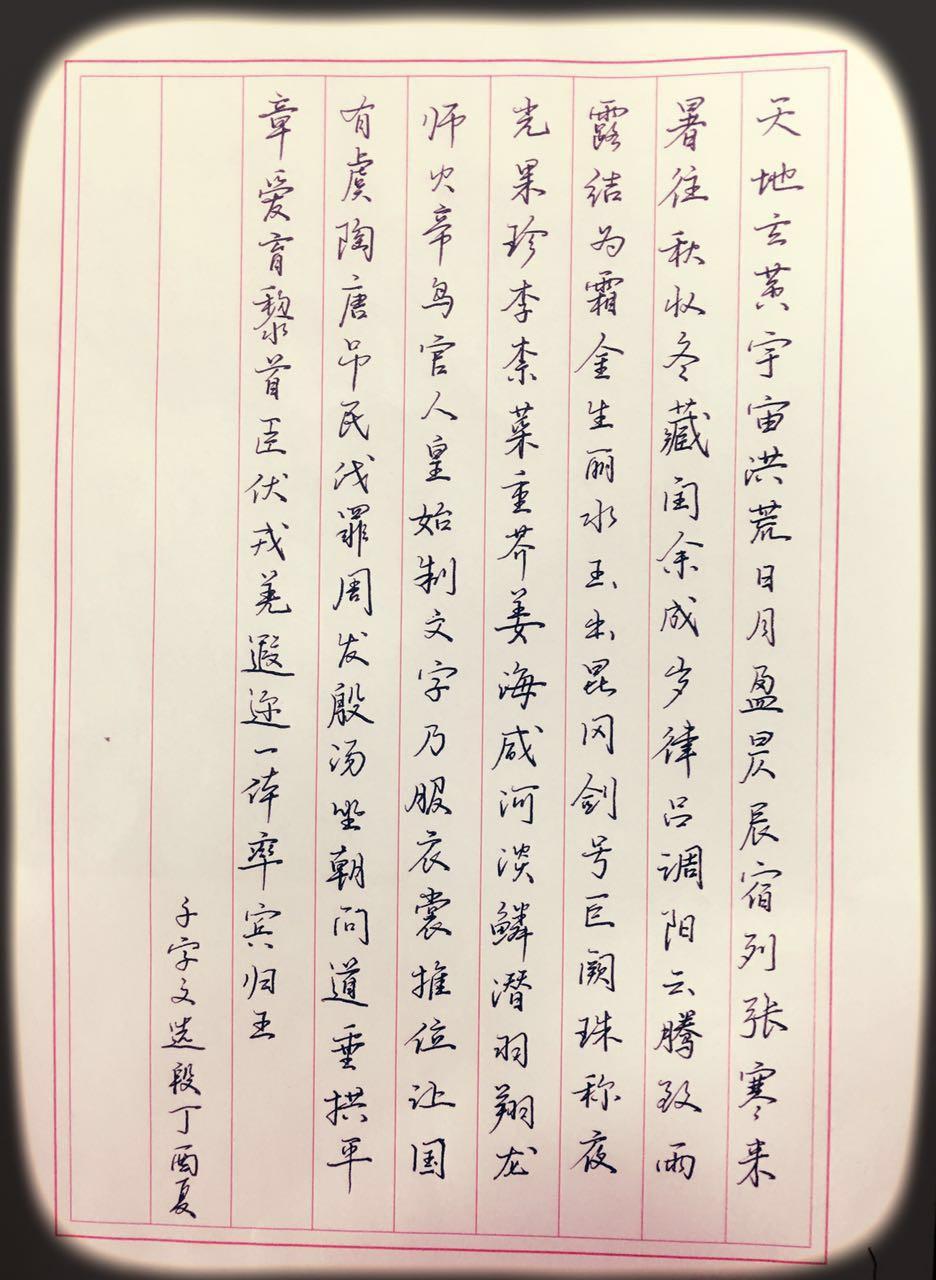 天地玄黄宇宙洪荒日月盈昃辰宿列张寒来
暑往秋收冬藏闰余成岁律吕调阳云腾致雨
露结为霜金生丽水玉出昆冈剑号巨阙珠称夜
光果珍李柰菜重芥姜海咸河淡鳞潜羽翔龙
师火帝鸟官人皇始制文字乃服衣裳推位让国
有虞陶唐吊民伐罪周发殷汤坐朝问道垂拱平
章爱育黎首臣伏戎羌遐迩一体率宾归王
千字文选段丁酉夏